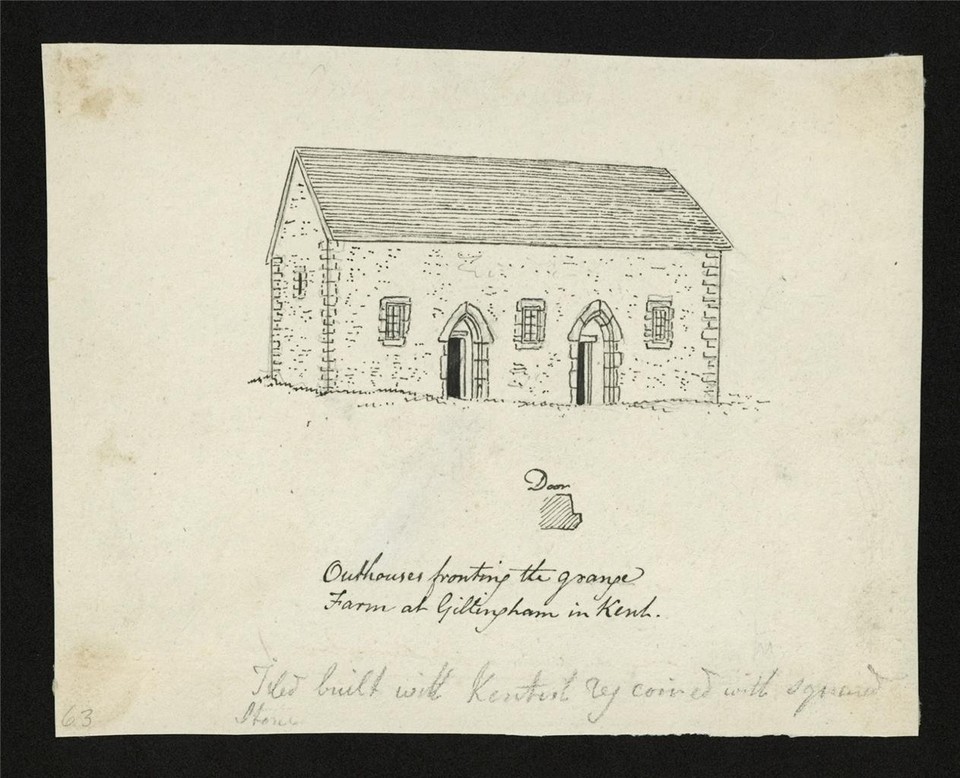 Door
Outhouses fronting the grange
Farm at Gillingham in Kent.
Tiled built with Kentish rag coined with squared
Stone
63